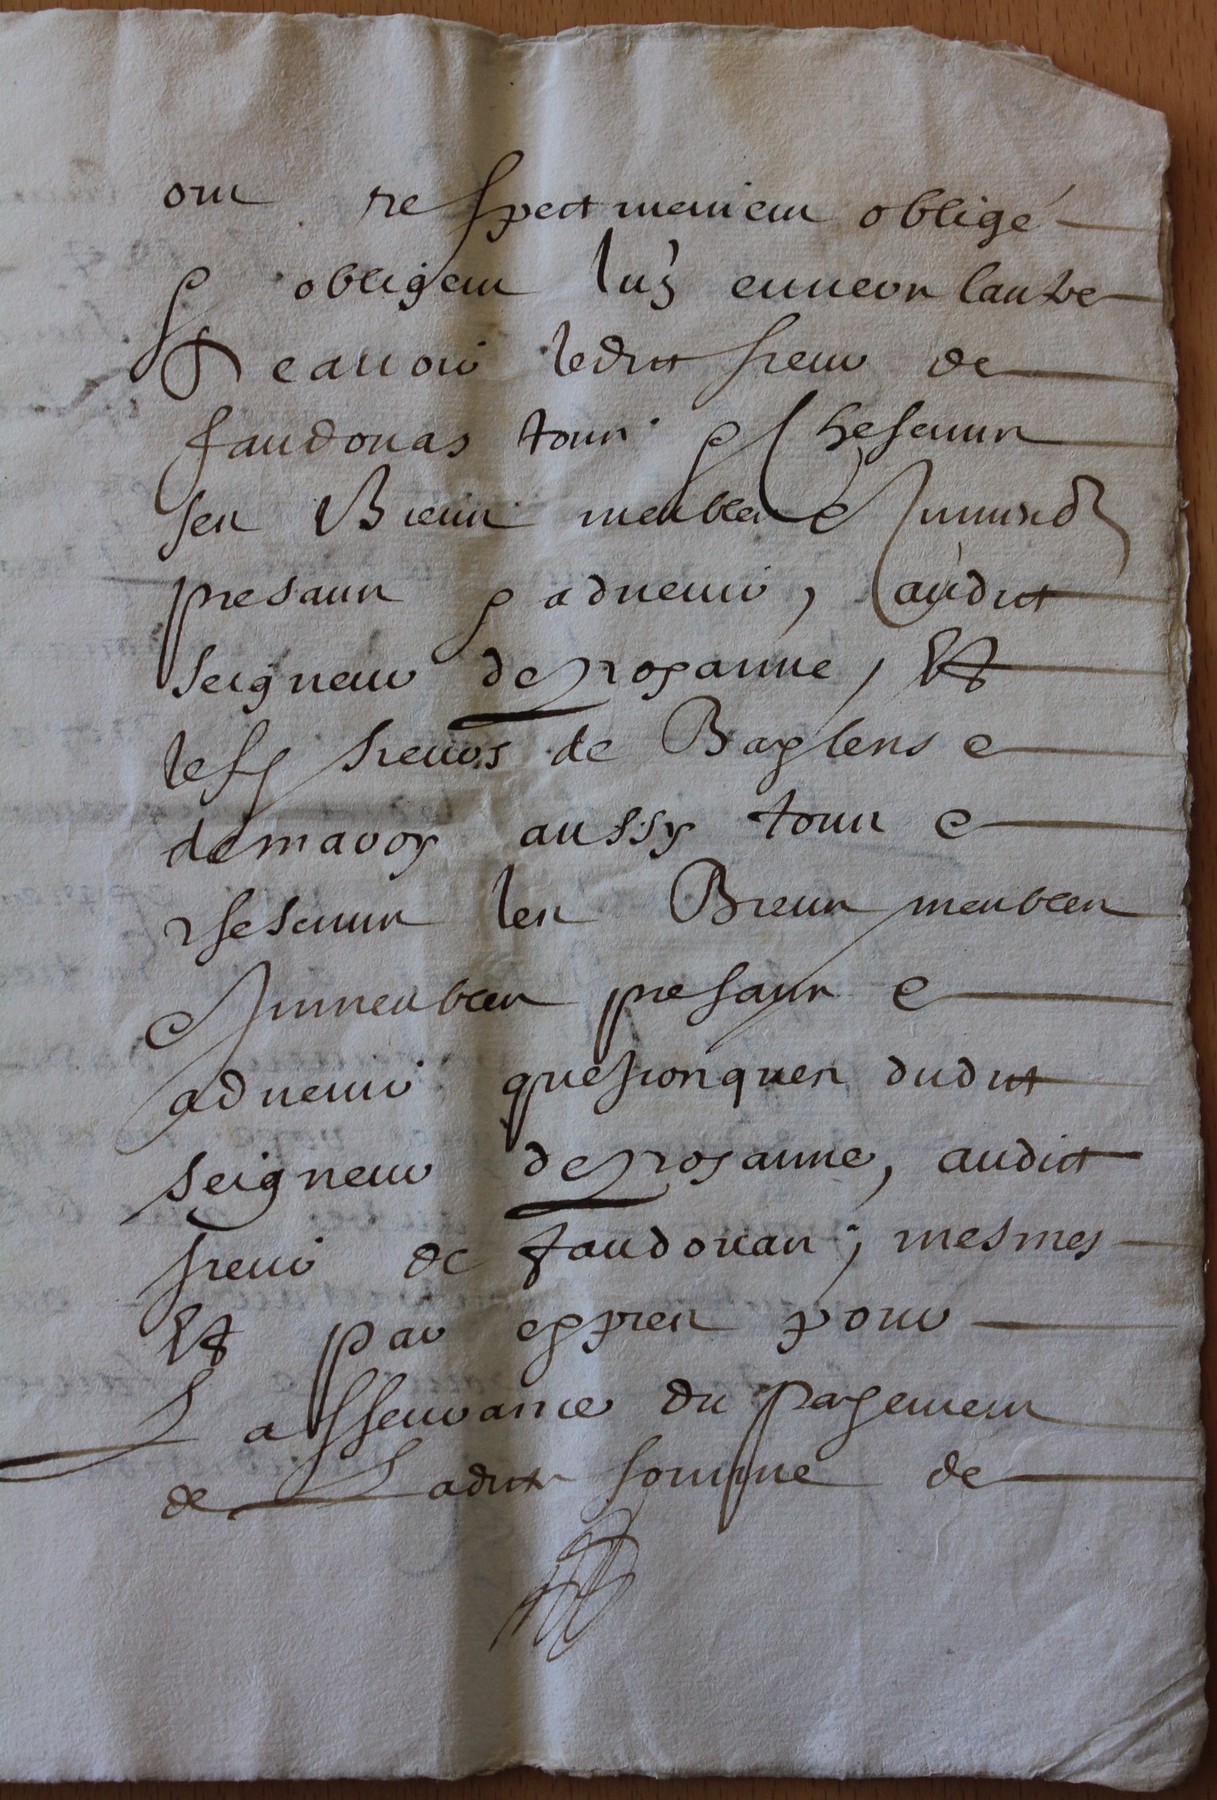 ont respectivement obligé
& obligent l'ung envers l'autre
Scavoir ledict sieur de
faudouas tous & chescuns
ses Biens meubles & Immeubles
presans & advenir, audict
seigneur de rosanne, Et
lesd sieurs de Baylens &
demavoy aussy tous &
chescuns les Biens meubles
& Immeubles presans &
advenir quelsconques dudict
seigneur de rosanne, audict
sieur de faudouas; mesmes
Et par expres pour
L'asseurance du payement
de Ladicte somme de